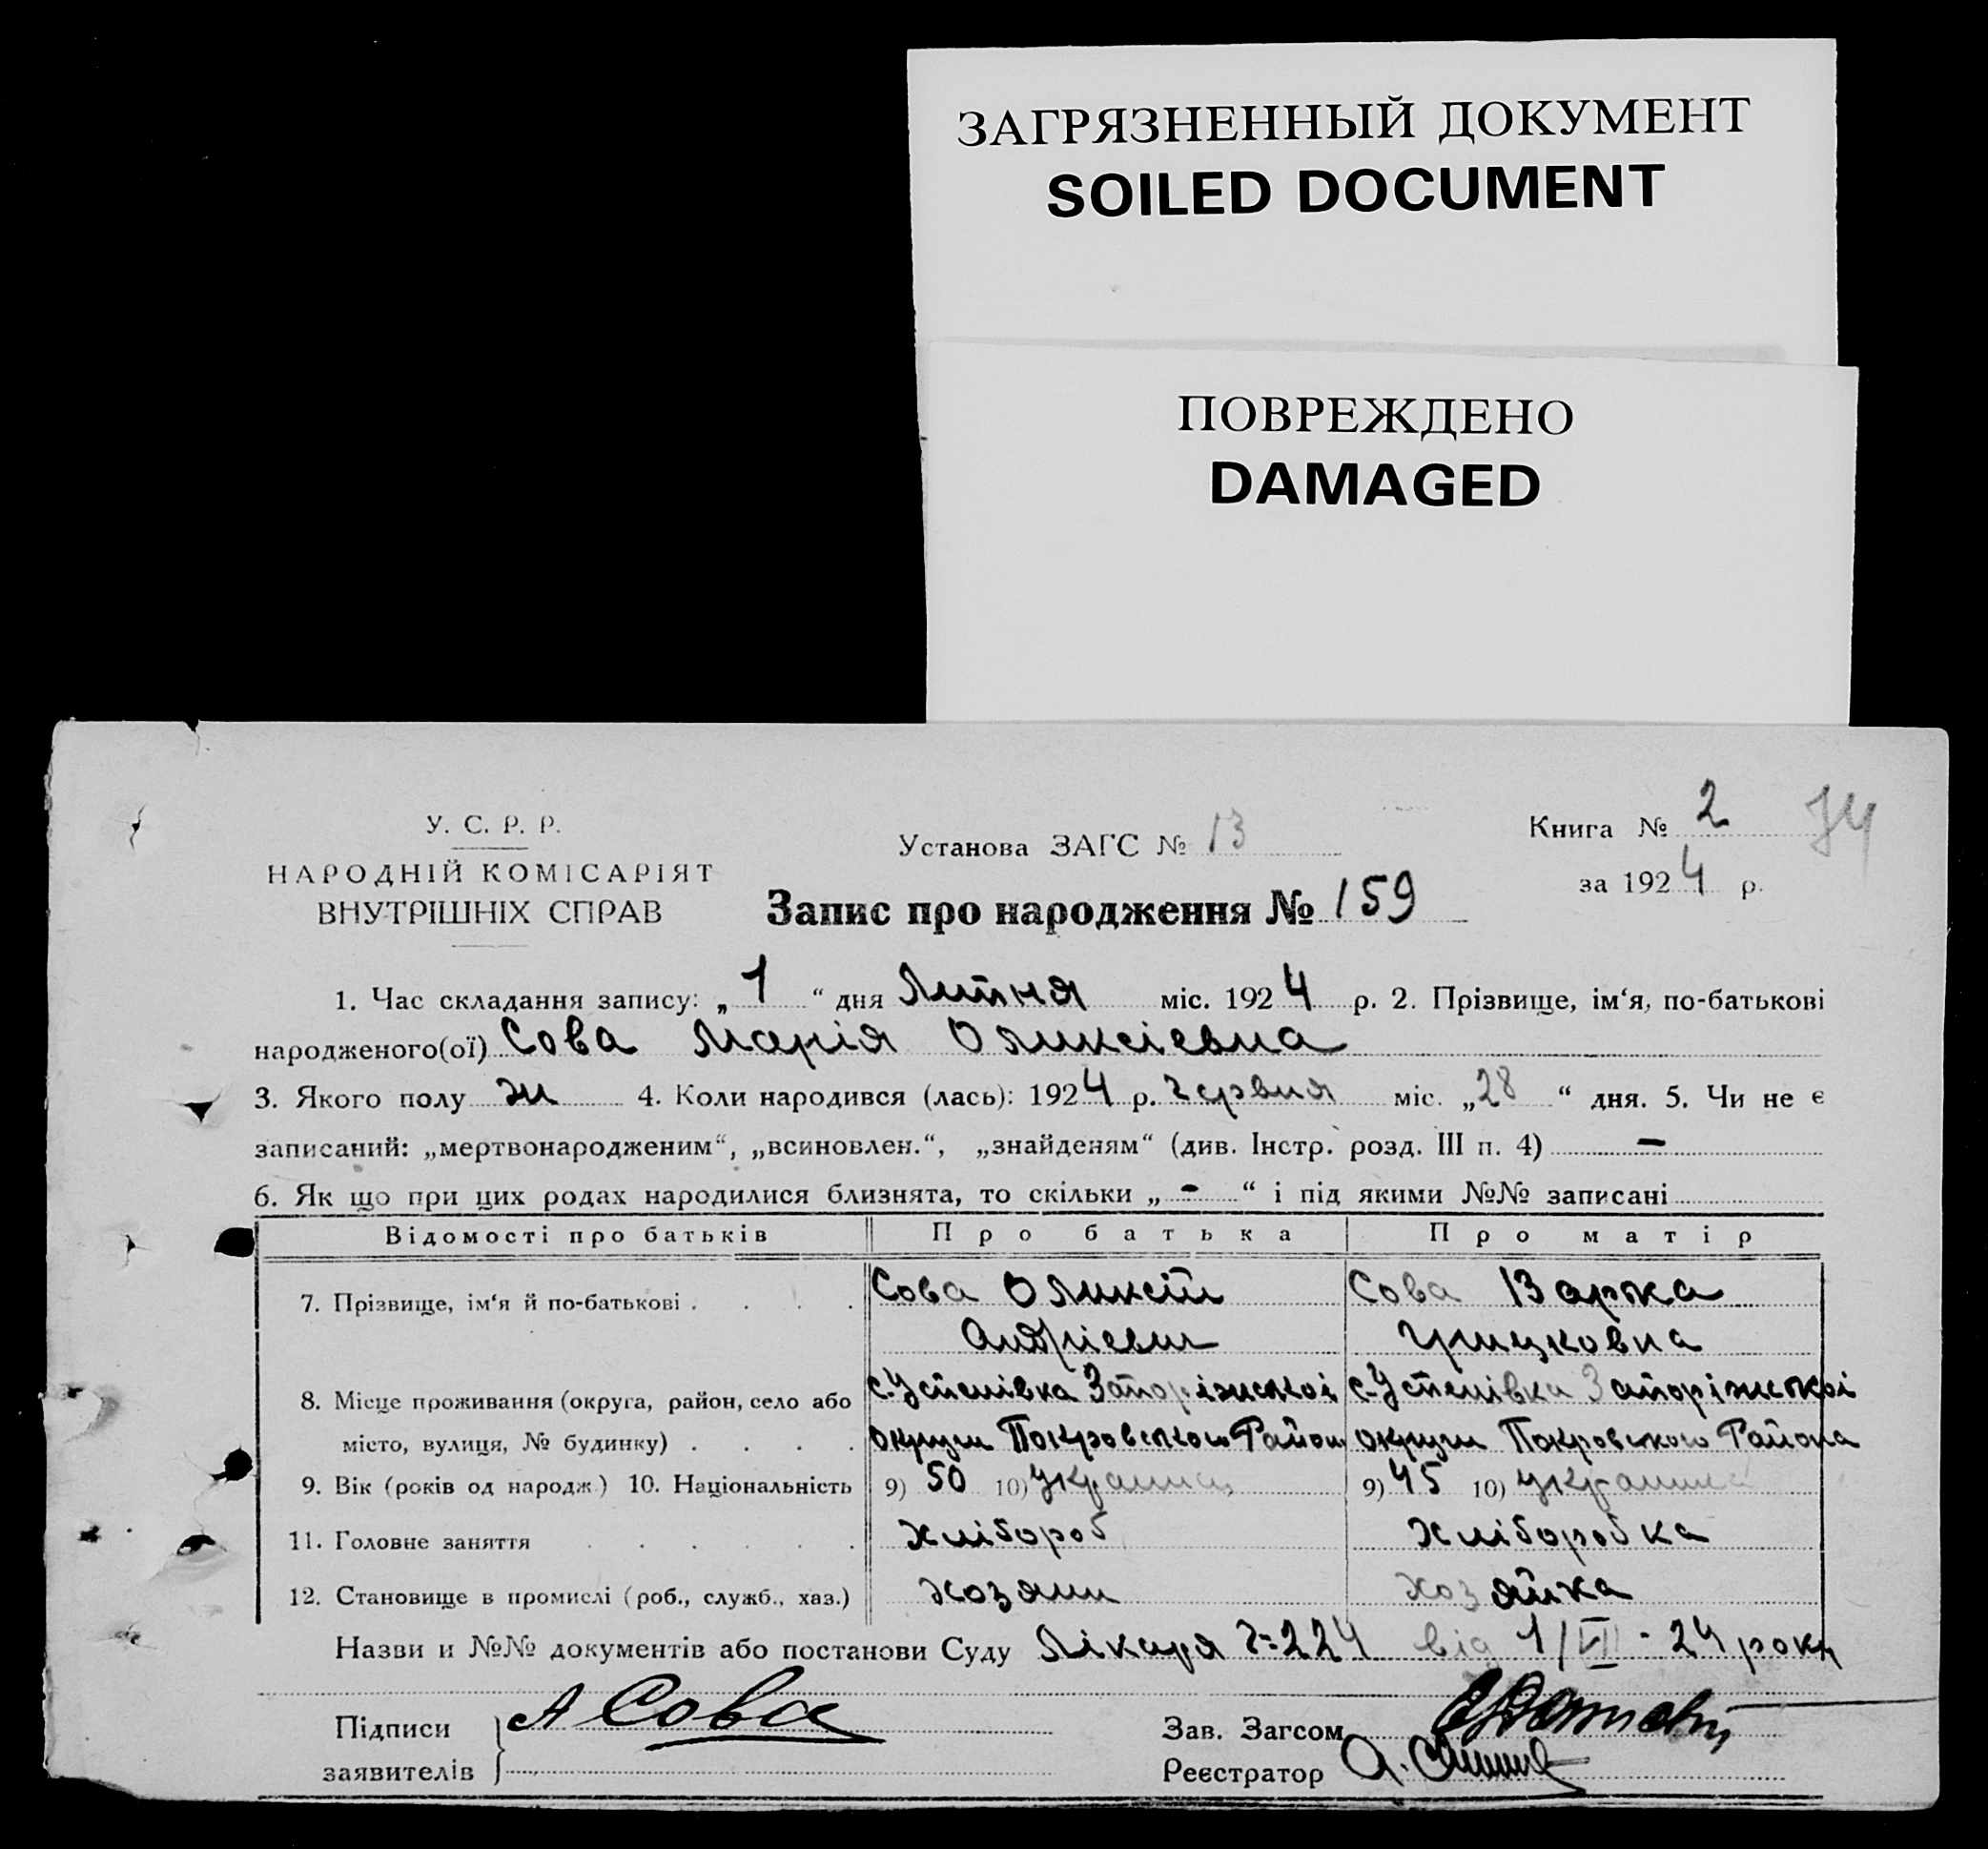 ЗАГРЯЗНЕННЫЙ ДОКУМЕНТ
SOILED DOCUMENT
ПОВРЕЖДЕНО
DAMAGED
У. С. Р. Р.
НАРОДНІЙ КОМІСАРІЯТ
ВНУТРІШНІХ СПРАВ
Установа ЗАГС № 13
Книга № 2
за 1924 р.
Запис про народження № 159
1. Час складання запису: „1“ дня Липня міс. 1924 р. 2. Прізвище, ім‘я, по-батькові
народженого(ої) Сова Марія Оликсієвна
3. Якого полу ж 4. Коли народився (лась): 1924 р. червня міс. „28“ дня. 5. Чи не є
записаний: „мертвонародженим“, „всиновлен.“, „знайденям“ (див. Інстр. розд. III п. 4) —
6. Як що при цих родах народилися близнята, то скільки „ - “ і під якими №№ записані
Відомості про батьків Про батька Про матір
7. Прізвище, ім‘я й по-батькові . . . . Сова Оликсій Сова Варка
Андрієвич Грицковна
8. Місце проживання (округа, район, село або с. Успенівка Запоріжської с. Успенівка Запоріжської
місто, вулиця, № будинку) . . . . округи Покровського Району округи Покровського Района
9. Вік (років од народж.) 10. Національність 9) 50 10) українц 9) 45 10) українка
11. Головне заняття . . . . . . хлібороб хліборобка
12. Становище в промислі (роб., служб., хаз.) хозяин хозяйка
Назви и №№ документів або постанови Суду Лікаря 224 від 1/VII - 24 року
Підписи А Сова Зав. Загсом
заявителів Реєстратор А.